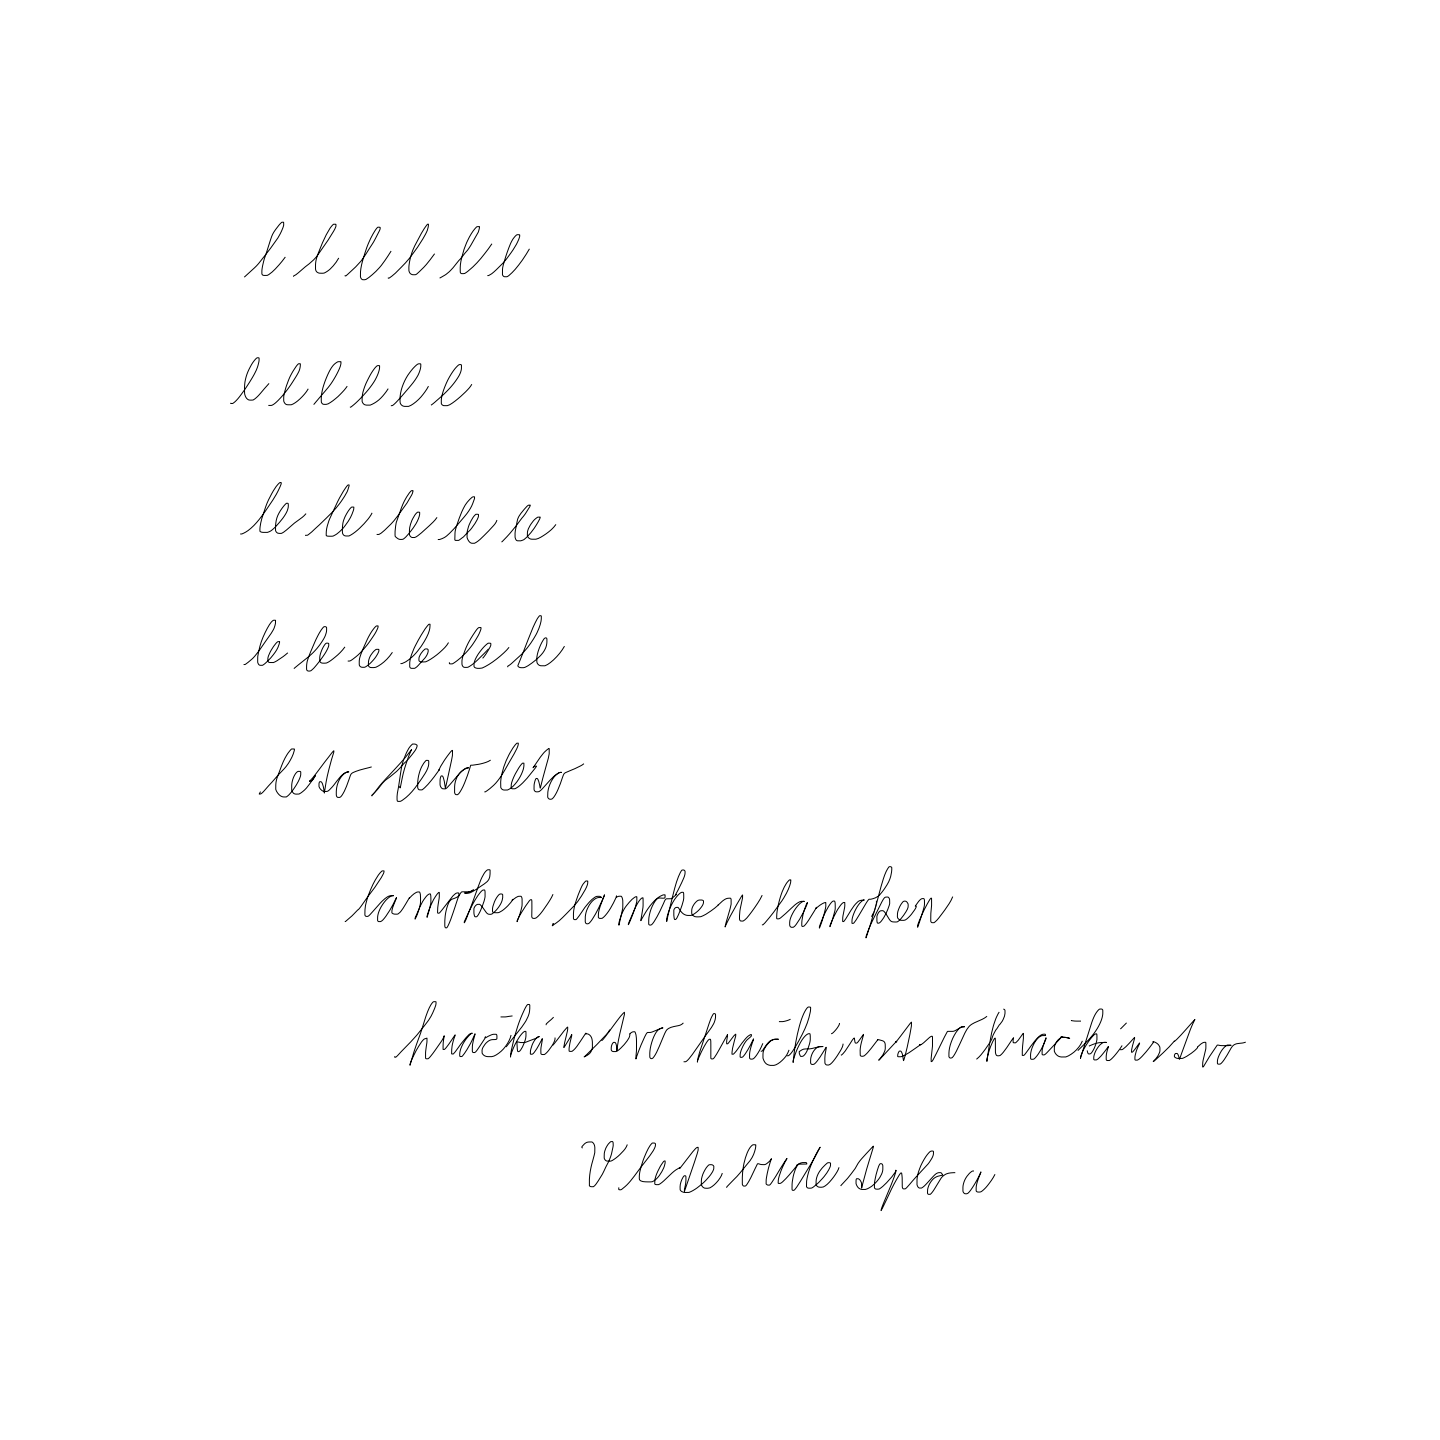 l l l l l l
e e e e e e
le le le le le
le le le le le le
leto leto leto
lamoken lamoken lamoken
hračkárstvo hračkárstvo hračkárstvo
V lete bude teplo a